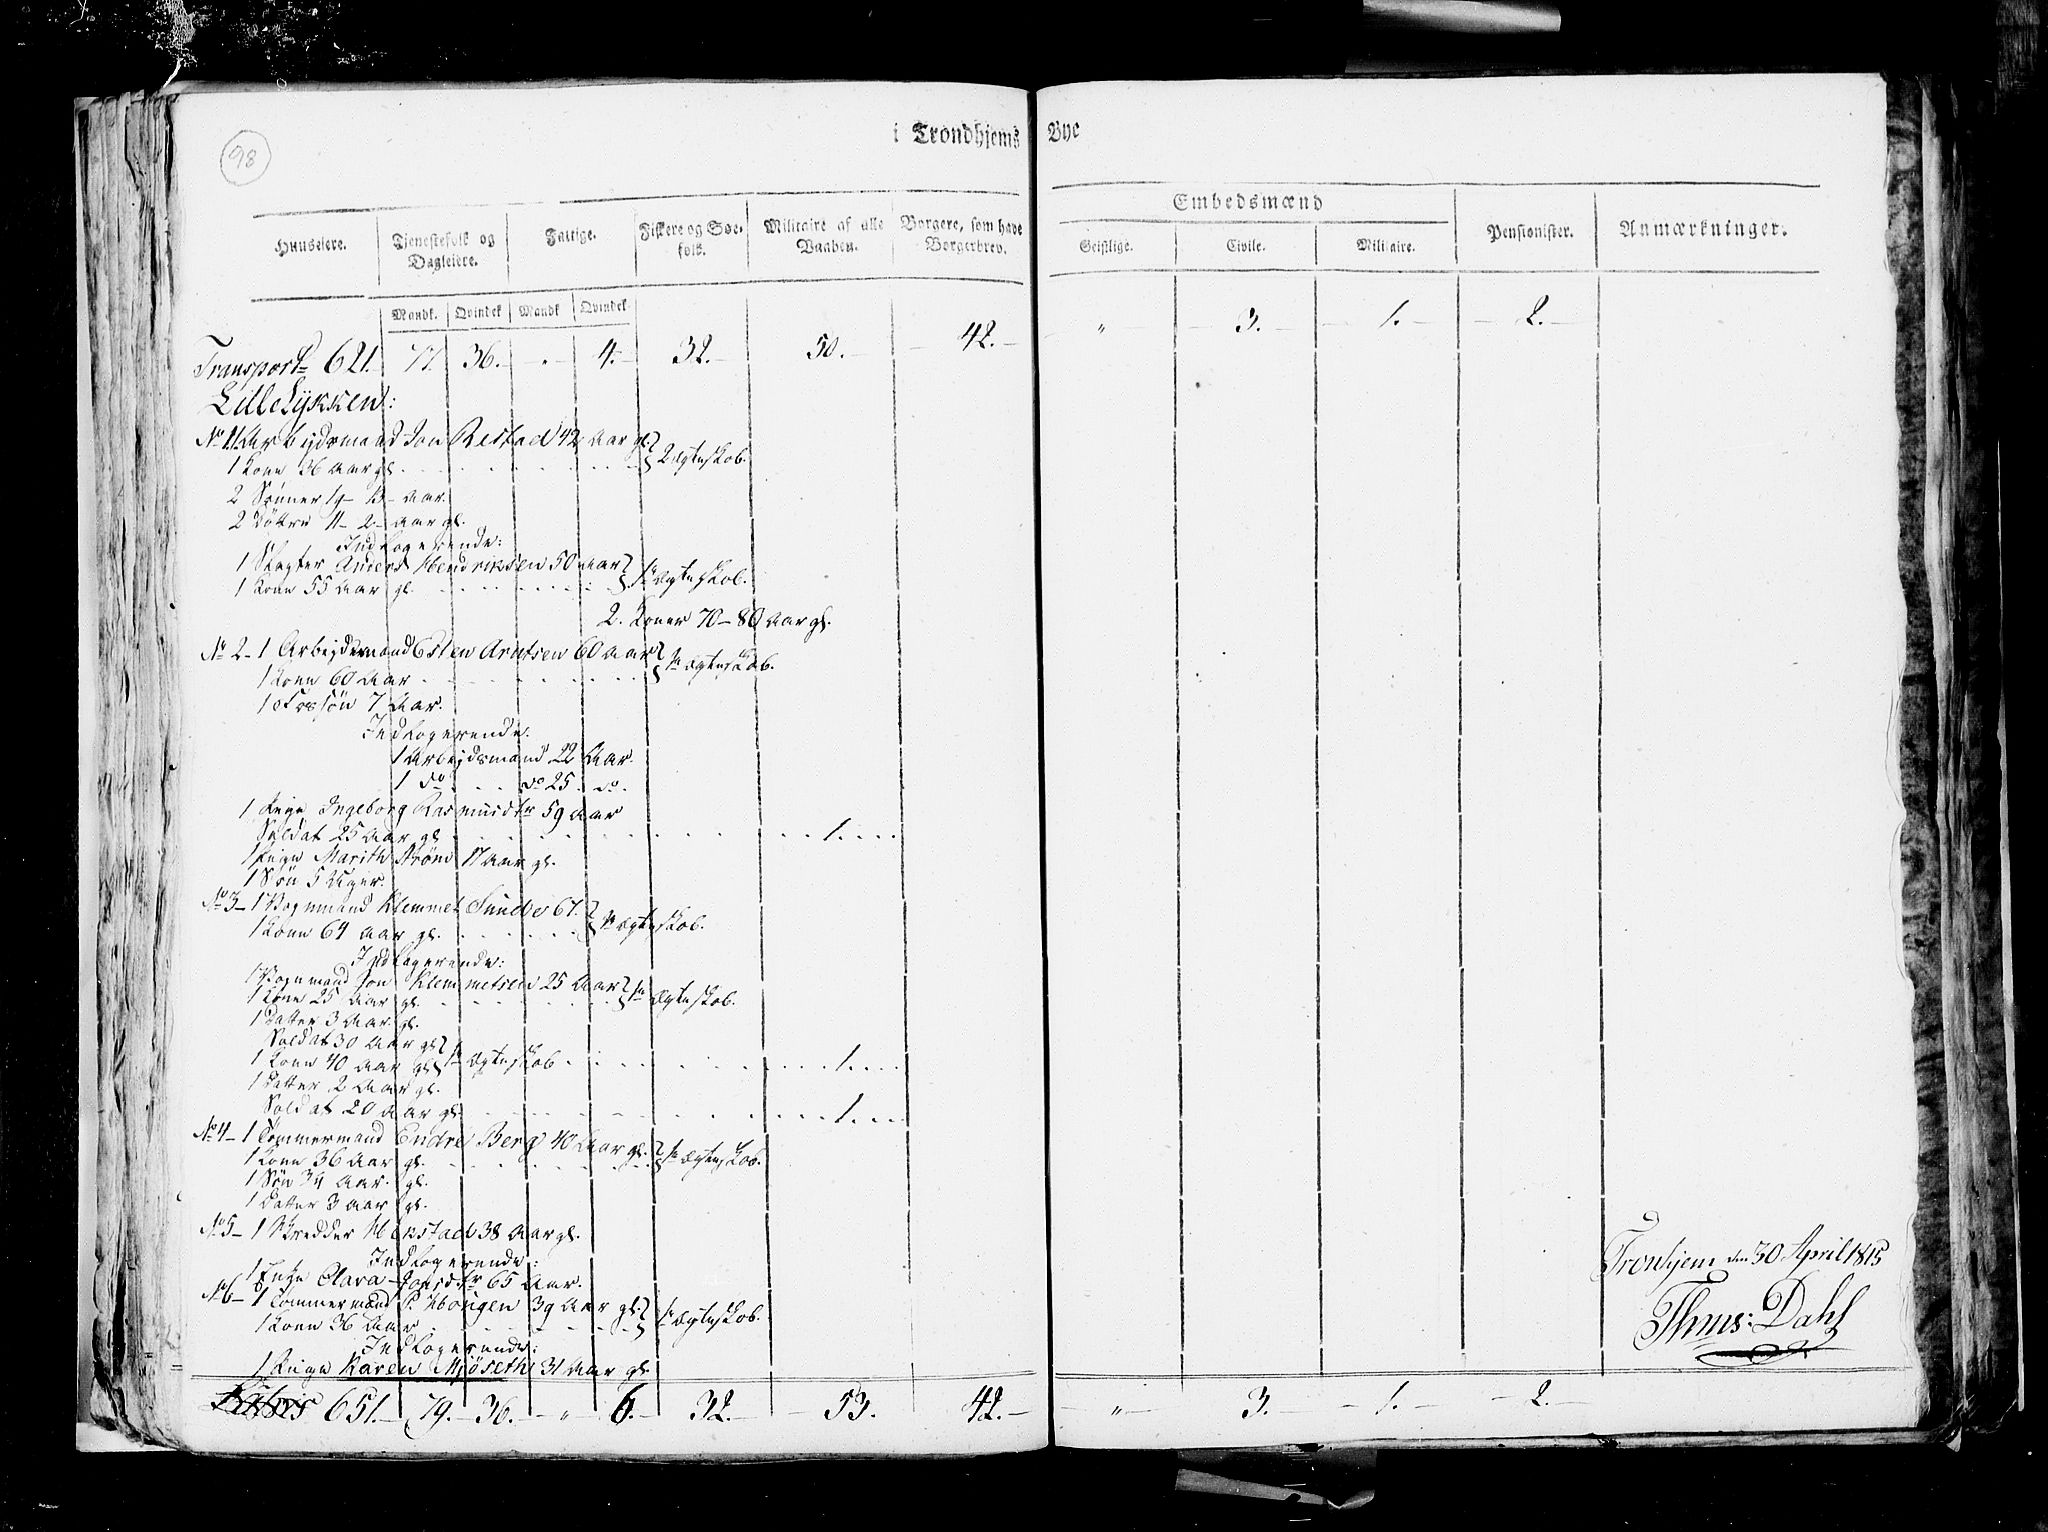 98
i Trondhjems Bye
Huuseiere. Tjenestefolk og Dagleiere. Fattige. Fiskere og Søefolk. Militaire af alle Vaaben. Borgere, som have Borgerbrev. Embedsmænd Pensionister. Anmærkninger.
Geistlige. Civile. Militaire.
Mandk. Qvindek Mandk Qvindek
Transport 621. 77. 36. - " - 4. 32. 50. 42. " 3. 1. 2.
Lillelykken:
No 1. 1 Arbejdsmand Jon Restad 42 Aar gl. } 1 Ægteskab.
1 Kone 36 Aar gl.
2 Sønner 19 - 13 - Aar.
2 Døttre 11 - 2 - Aar gl.
Indlogerende:
1 Slagter Anders Hendriksen 50 Aar } 1 Ægteskab.
1 Kone 55 Aar gl.
2. Koner 70 - 80 Aar gl.
No 2 - 1 Arbejdsmand Esten Arntsen 60 Aar } 1 Ægteskab.
1 Kone 60 Aar
1 Søn 7 Aar.
Indlogerende:
1 Arbejdsmand 22 Aar.
1 do do 25. do.
1 Pige Ingeborg Rasmusdtr 59 Aar
Soldat 25 Aar gl. 1.
1 Pige Marith Strøm 17 Aar gl.
1 Søn 5 Uger.
No 3 - 1 Vognmand Klemmet Sunde 67. } 1 Ægteskab.
1 Kone 64 Aar gl.
Indlogerende:
1 Vognmand Jon Klemmetsen 25 Aar } 1 Ægteskab.
1 Kone 25 Aar gl.
1 Datter 3 Aar gl.
Soldat 30 Aar gl.
1 Kone 40 Aar gl. } 1 Ægteskab 1.
1 Datter 2 Aar gl.
Soldat 20 Aar gl. 1.
No 4 - 1 Tømmermand Endre Berg 40 Aar gl. } 1 Ægteskab.
1 Kone 36 Aar gl.
1 Søn 3¼ Aar. gl.
1 Datter 3 Aar gl.
No 5 - 1 Skredder Henstad 38 Aar gl.
Indlogerende:
1 Enke Clara Jonsdtr 65 Aar.
No 6 - 1 Tømmermand P. Hougen 39 Aar gl. } 1 Ægteskab.
1 Kone 36 Aar
Indlogerende:
1 Pige Karen Mjøseth 31 Aar gl.
651. 79. 36. - " 6. 32. 53. 42. " 3. 1. 2.
Tronhjem den 30 April 1815
Thms: Dahl